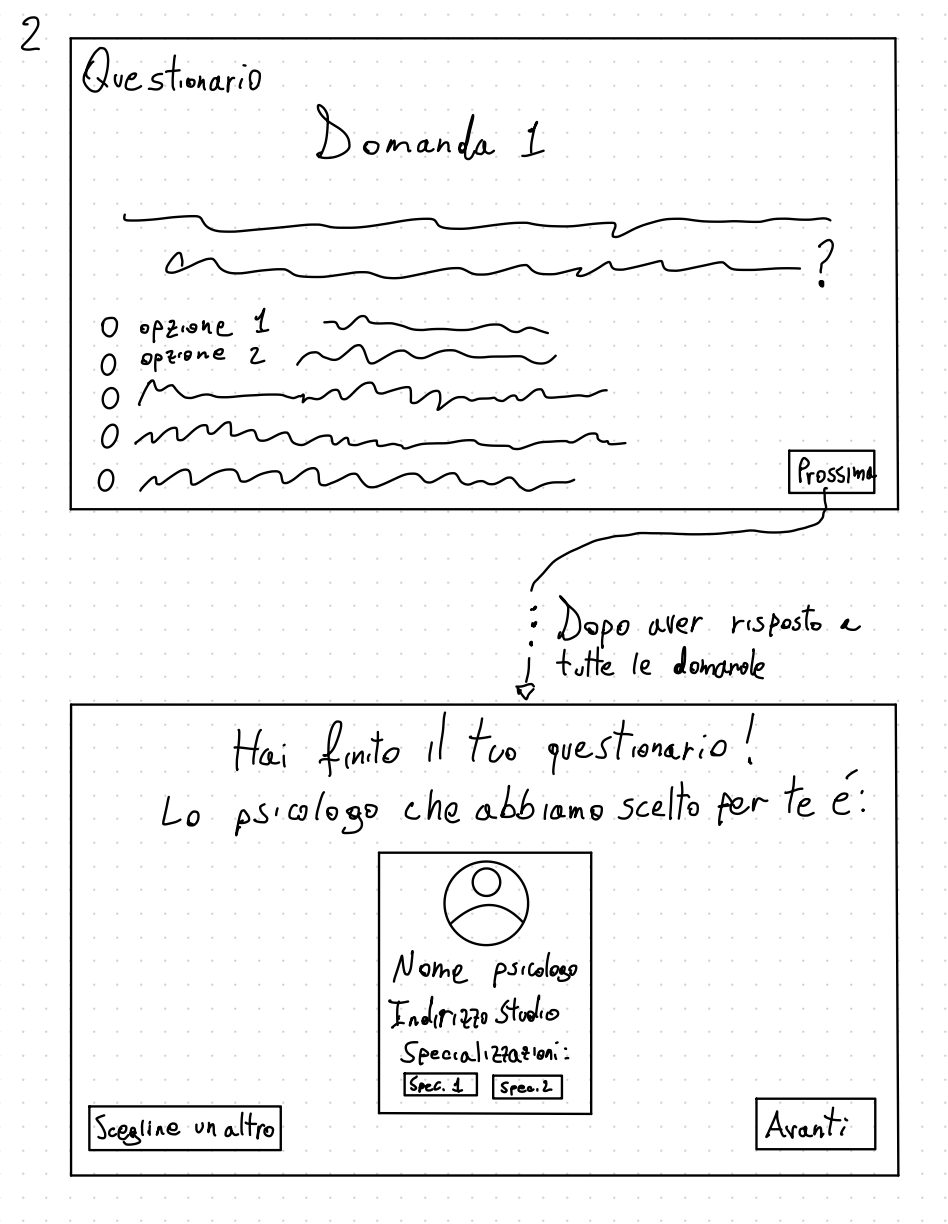 2
Questionario
Domanda 1
?
opzione 1
opzione 2
Prossima
Dopo aver risposto a
tutte le domande
Hai finito il tuo questionario!
Lo psicologo che abbiamo scelto per te é:
Nome psicologo
Indirizzo Studio
Specializzazioni:
Spec. 1 Spec. 2
Scegline un altro
Avanti